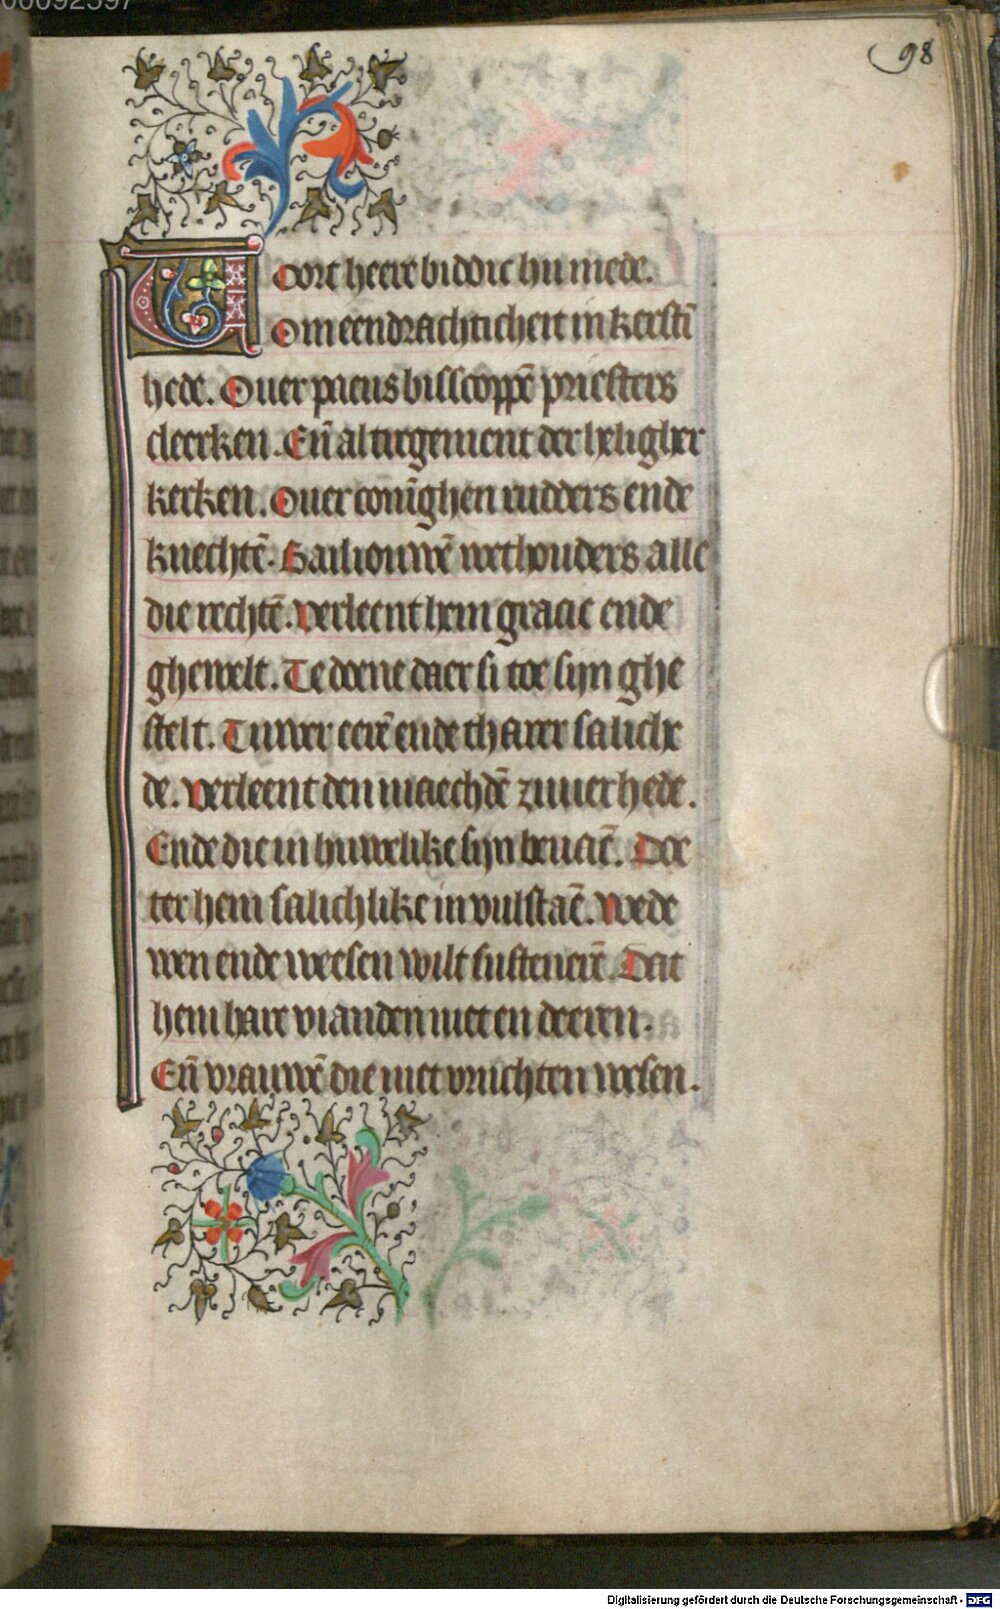 00092597
98
Voort heere biddic hu mede.
Om eendrachticheit in kerstī
hede. Ouer paeus bisscoppē priesters
cleerken. Eñ al tregement der heligher
kerken. Ouer conīghen rudders ende
knechtē. Bailiouwē wethouders alle
die rechtē. verleent hem gracie ende
ghewelt. Te doene daer si toe sijn ghe
stelt. Tuwer eerē ende tharer saliche
de. verleent den maechdē zuuerhede.
Ende die in huwelike sijn beuaē. Doe
ter hem salichlike in vulstaē. wede
wen ende weesen wilt sustenerē. Dat
hem hare vianden niet en deeren.
Eñ vrauwē die met vruchten wesen.
Digitalisierung gefördert durch die Deutsche Forschungsgemeinschaft - DFG